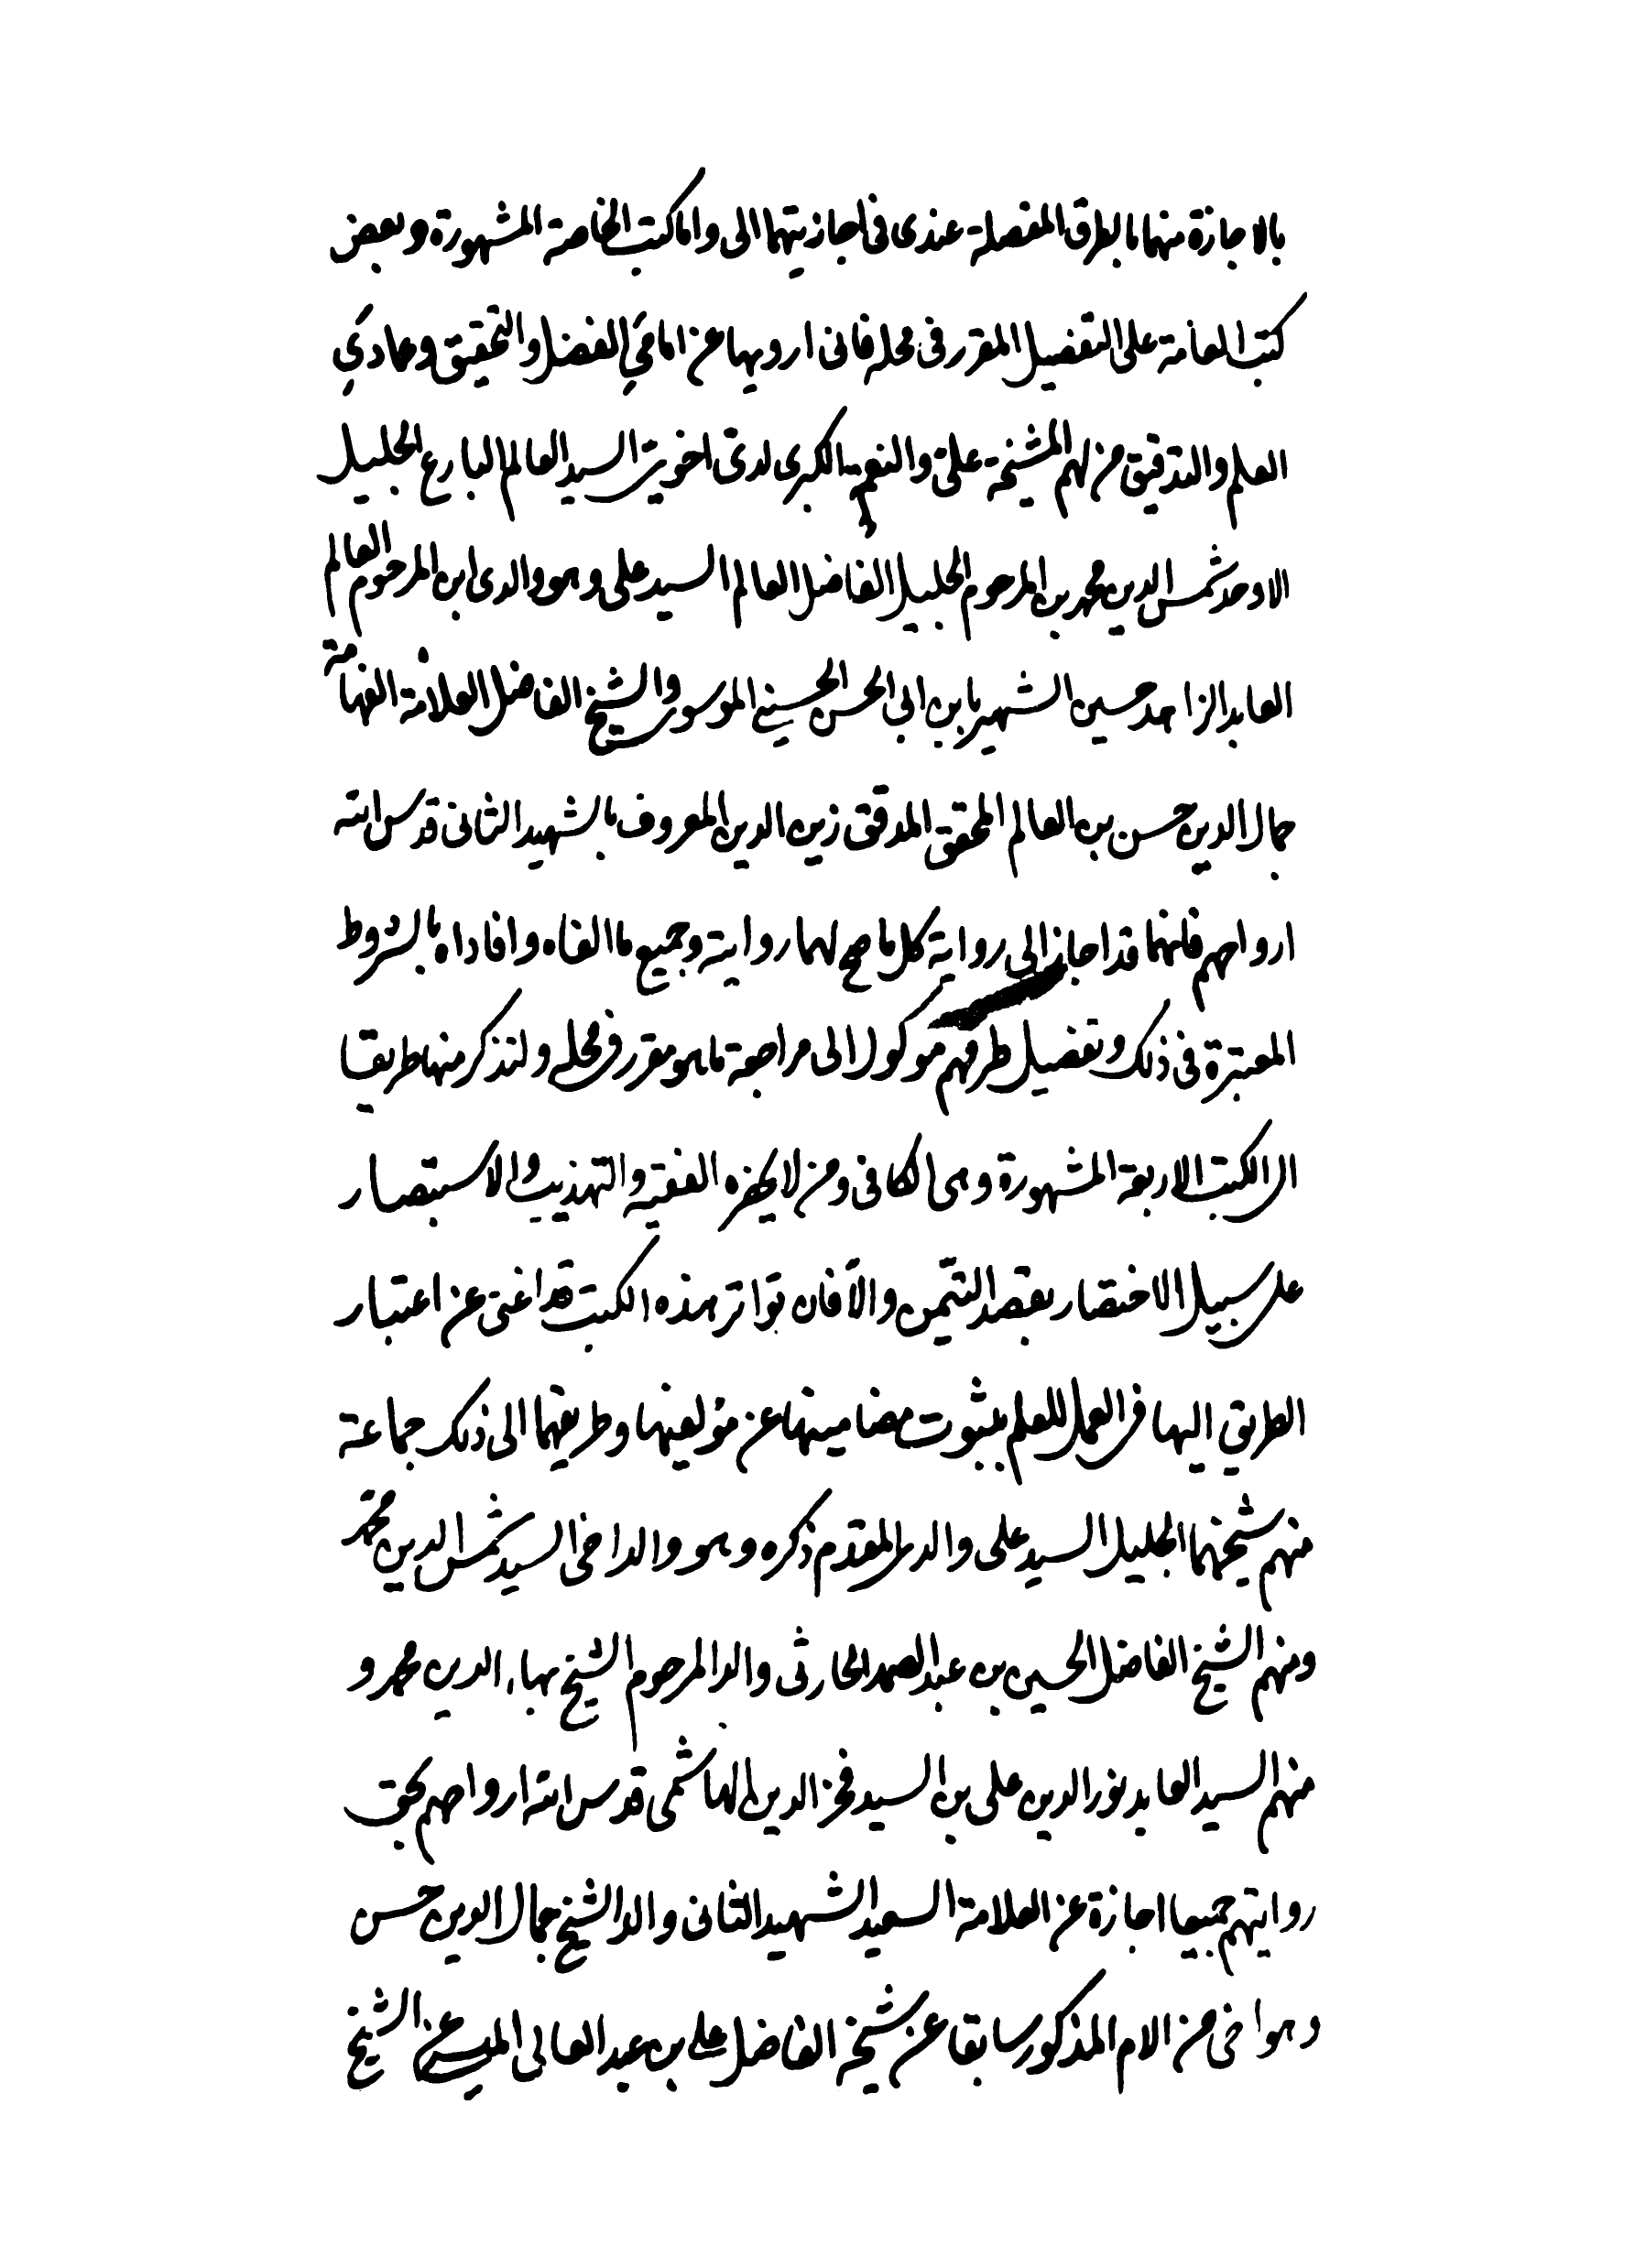 بالاجازة منهما بالطرق المفصلة عندى فى اجازيتهما الى واما كتب الخاصة المشهورة وبعض
كتب العامة على التفضيل المقرر فى محله فانى ارويها عن امامَيِ الفضل والتحقيق وعمادَيِ
العلم والتدقيق من لهم المشيخة علىّ والنعمة الكبرى لدىّ اخوىّ السيد العالم البارع الجليل
الاوحد شمس الدين محمد بن المرحوم الجليل الفاضل العالم السيد على وهو والدى ابن المرحوم العالم
العابد الزاهد حسين الشهير بابن ابى الحسن الحسينى الموسوى والشيخ الفاضل العلامة الفهامة
جمال الدين حسن بن العالم المحقق المدقق زين الدين المعروف بالشهيد الثانى قدس الله
ارواحهم فانهما قد اجاز الى رواية كل ما صح لهما روايته وجميع ما الفاه وافاداه بالشروط
المعتبرة فى ذلك وتفضيل طرقهم موكول الى مراجعة ما هو مقرر فى محله ولنذكر منها طريقا
الى الكتب الاربعة المشهورة وهى الكافى ومن لا يحضره الفقيه والتهذيب والاستبصار
على سبيل الاختصار بقصد التيمّن والّا فان تواتر هذه الكتب قد اغنى عن اعتبار
الطريق اليها فى العمل للعلم بثبوت مضامينها عن مؤلفيها وطريقهما الى ذلك جماعة
منهم شيخهما الجليل السيد على والدى المقدم ذكره وهو والد اخى السيد شمس الدين محمد
ومنهم الشيخ الفاضل الحسين بن عبد الصمد الحارثى والد المرحوم الشيخ بهاء الدين محمد و
منهم السيد العابد نور الدين على بن السيد فخر الدين الهاشمى قدس الله ارواحهم بحق
روايتهم جميعا اجازة عن العلامة السعيد الشهيد الثانى والد الشيخ جمال الدين حسن
وهو اخى من الام المذكور سابقا عن شيخه الفاضل على بن عبد العالى الميسى عن الشيخ